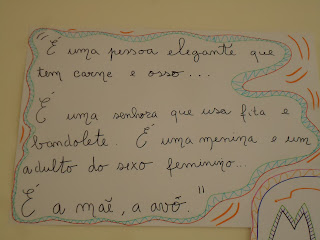 "É uma pessoa elegante que
tem carne e osso...
É uma senhora que usa fita e
bandolete. É uma menina e um
adulto do sexo feminino...
É a mãe, a avó."